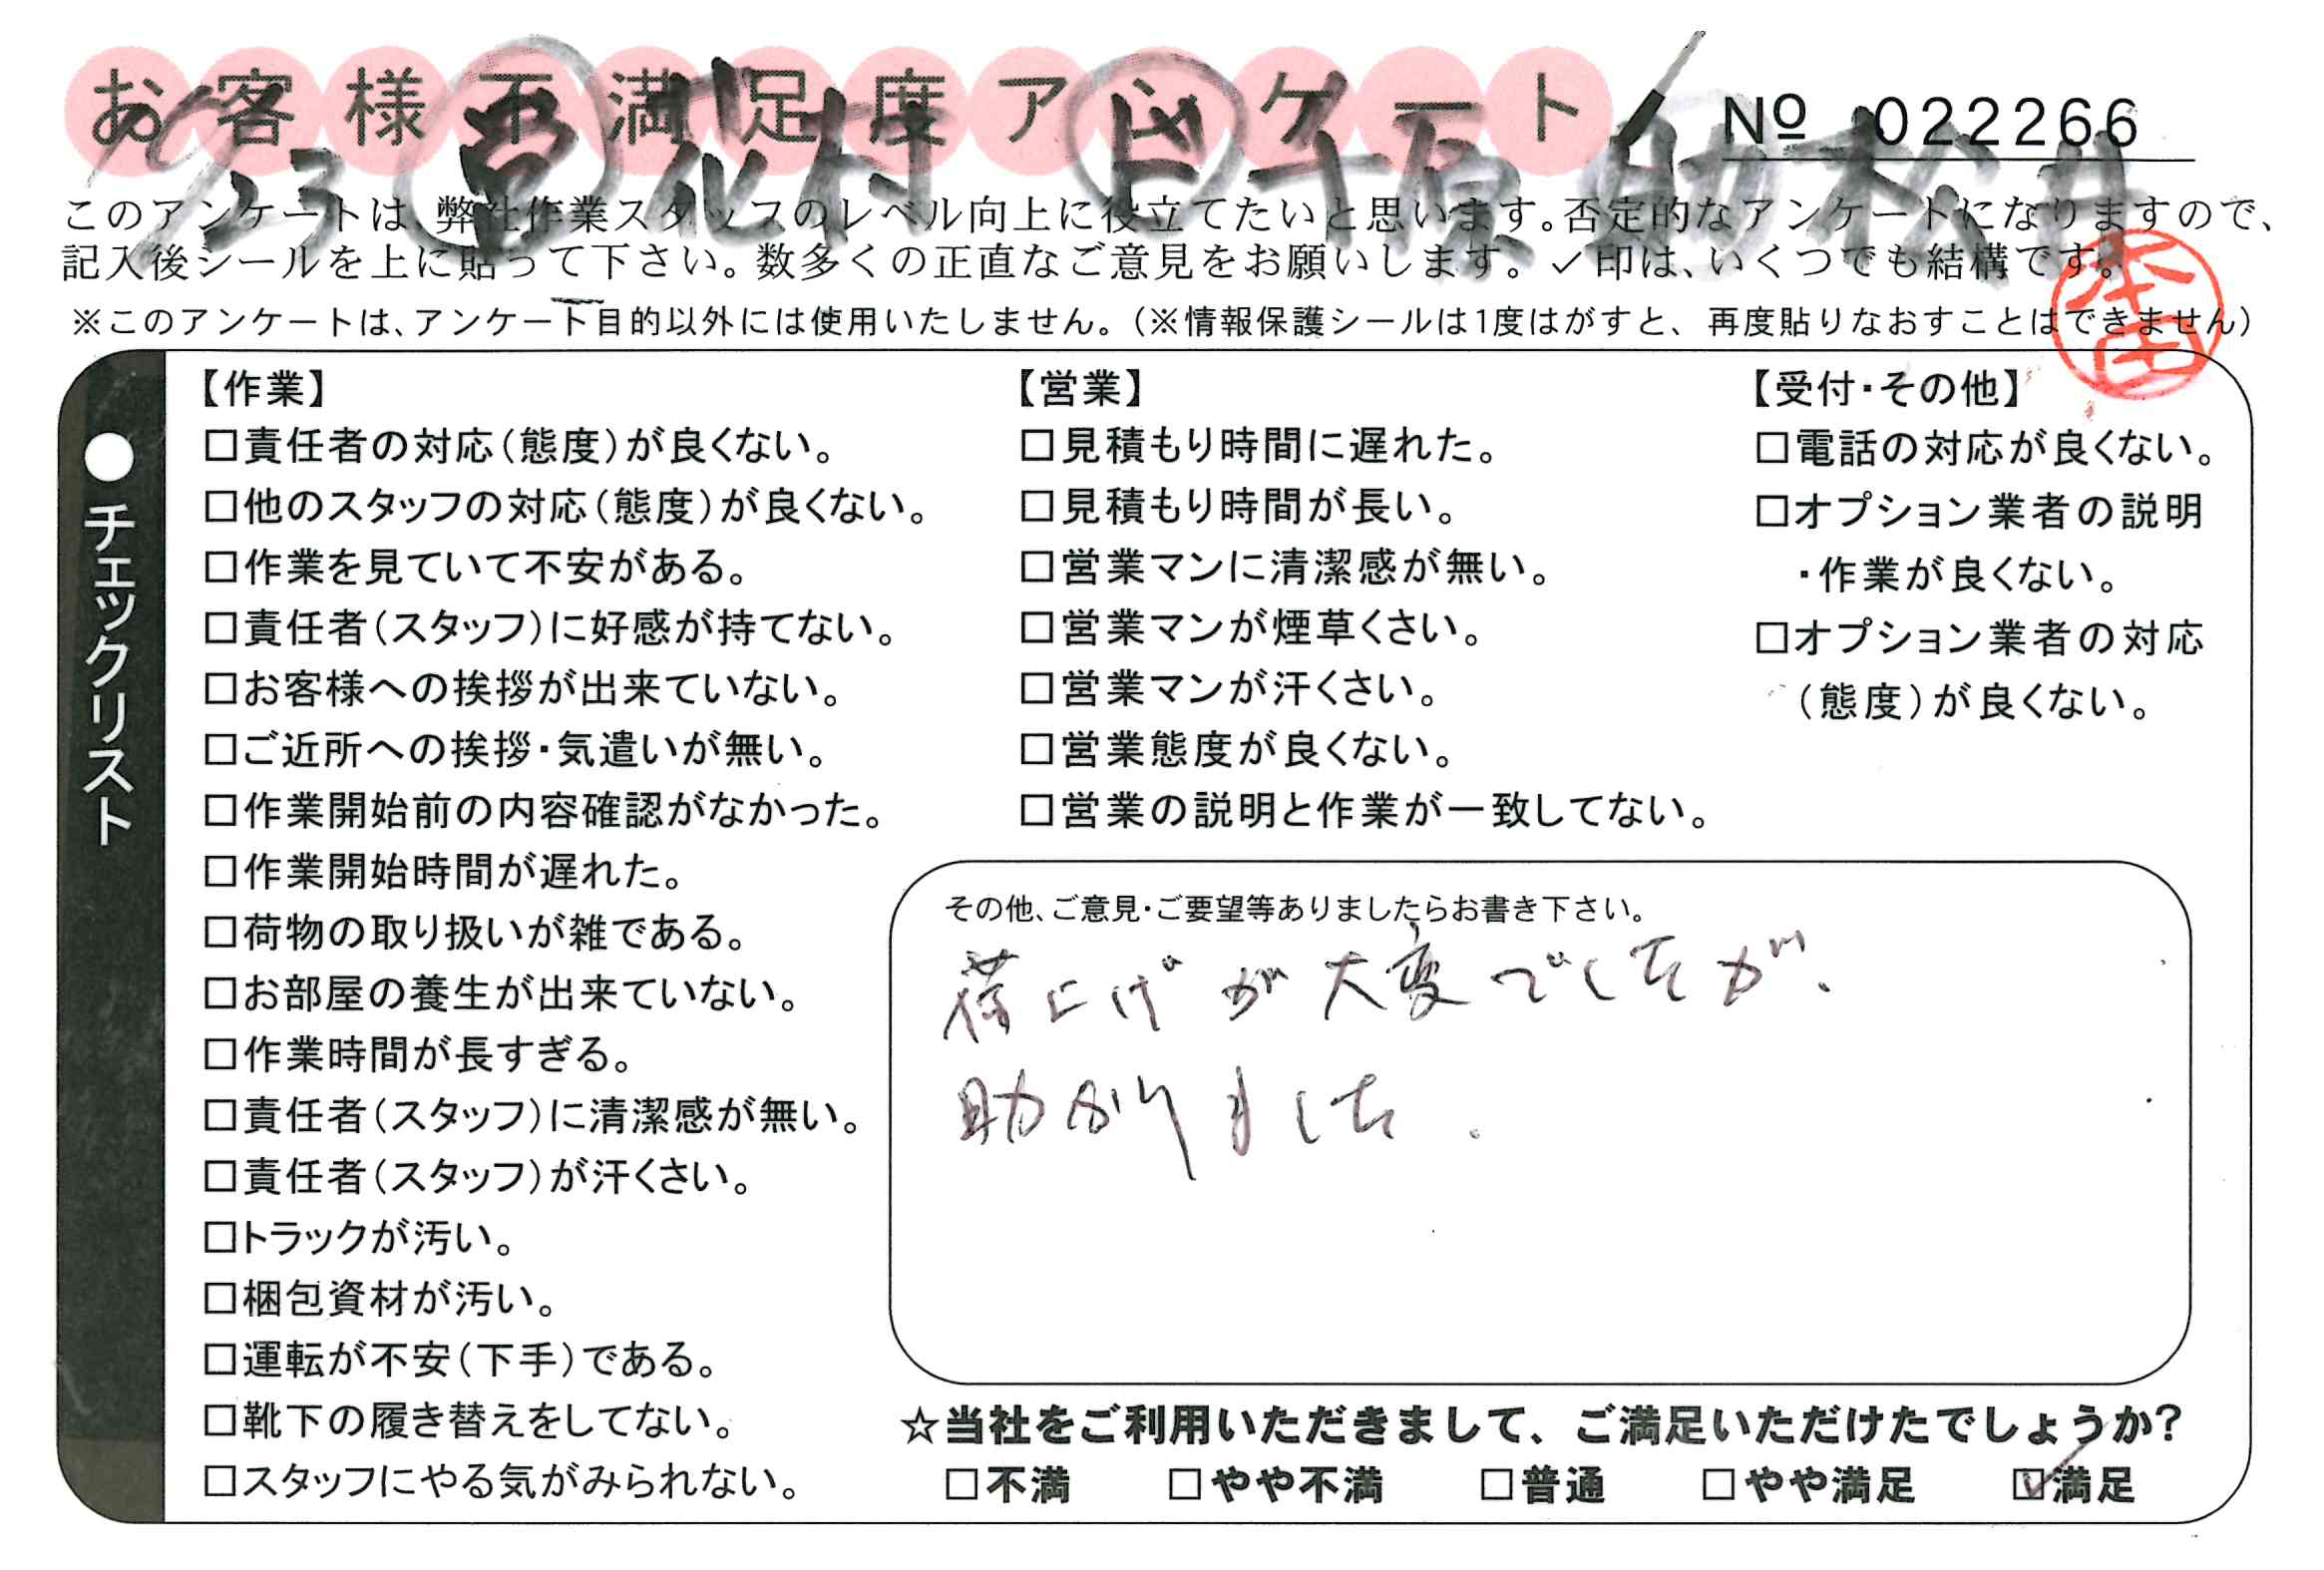 お客様不満足度アンケート
№ 022266
/23 花村 千原 助 松井
このアンケートは、弊社作業スタッフのレベル向上に役立てたいと思います。否定的なアンケートになりますので、
記入後シールを上に貼って下さい。数多くの正直なご意見をお願いします。✓印は、いくつでも結構です。
※このアンケートは、アンケート目的以外には使用いたしません。(※情報保護シールは1度はがすと、再度貼りなおすことはできません)
本田
●チェックリスト
【作業】
□責任者の対応(態度)が良くない。
□他のスタッフの対応(態度)が良くない。
□作業を見ていて不安がある。
□責任者(スタッフ)に好感が持てない。
□お客様への挨拶が出来ていない。
□ご近所への挨拶・気遣いが無い。
□作業開始前の内容確認がなかった。
□作業開始時間が遅れた。
□荷物の取り扱いが雑である。
□お部屋の養生が出来ていない。
□作業時間が長すぎる。
□責任者(スタッフ)に清潔感が無い。
□責任者(スタッフ)が汗くさい。
□トラックが汚い。
□梱包資材が汚い。
□運転が不安(下手)である。
□靴下の履き替えをしてない。
□スタッフにやる気がみられない。
【営業】
□見積もり時間に遅れた。
□見積もり時間が長い。
□営業マンに清潔感が無い。
□営業マンが煙草くさい。
□営業マンが汗くさい。
□営業態度が良くない。
□営業の説明と作業が一致してない。
【受付・その他】
□電話の対応が良くない。
□オプション業者の説明
・作業が良くない。
□オプション業者の対応
(態度)が良くない。
その他、ご意見・ご要望等ありましたらお書き下さい。
荷上げが大変でしたが、
助かりました。
☆当社をご利用いただきまして、ご満足いただけたでしょうか?
□不満 □やや不満 □普通 □やや満足 ☑満足